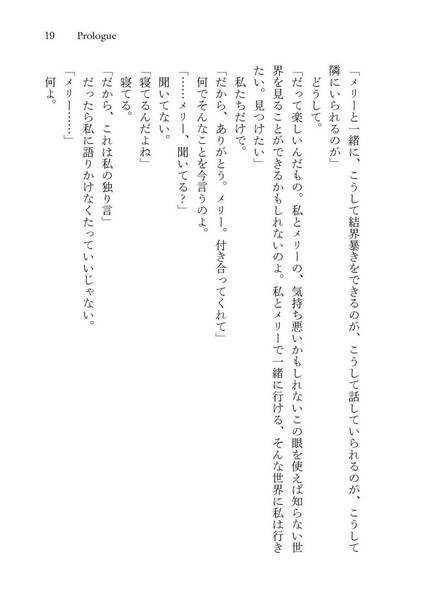 19 Prologue
「メリーと一緒に、こうして結界暴きをできるのが、こうして話していられるのが、こうして
隣にいられるのが」
どうして。
「だって楽しいんだもの。私とメリーの、気持ち悪いかもしれないこの眼を使えば知らない世
界を見ることができるかもしれないのよ。私とメリーで一緒に行ける、そんな世界に私は行き
たい。見つけたい」
私たちだけで。
「だから、ありがとう。メリー。付き合ってくれて」
何でそんなことを今言うのよ。
「……メリー、聞いてる?」
聞いてない。
「寝てるんだよね」
寝てる。
「だから、これは私の独り言」
だったら私に語りかけなくたっていいじゃない。
「メリー……」
何よ。